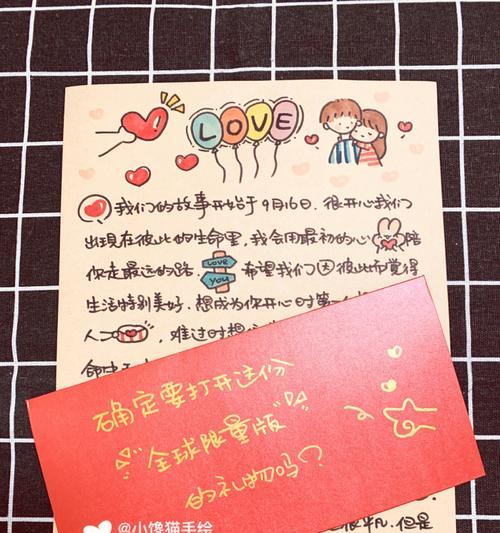 LOVE
我们的故事开始于9月16日,很开心我们
出现在彼此的生命里,我会用最初的心陪
你走最远的路。LOVE YOU 希望我们因彼此而觉得
生活特别美好,想成为你开心时第一
人,难过时想
命中
确定要打开这份
"全球限量版"
的礼物吗?
@小馋猫手绘
很平凡,但是